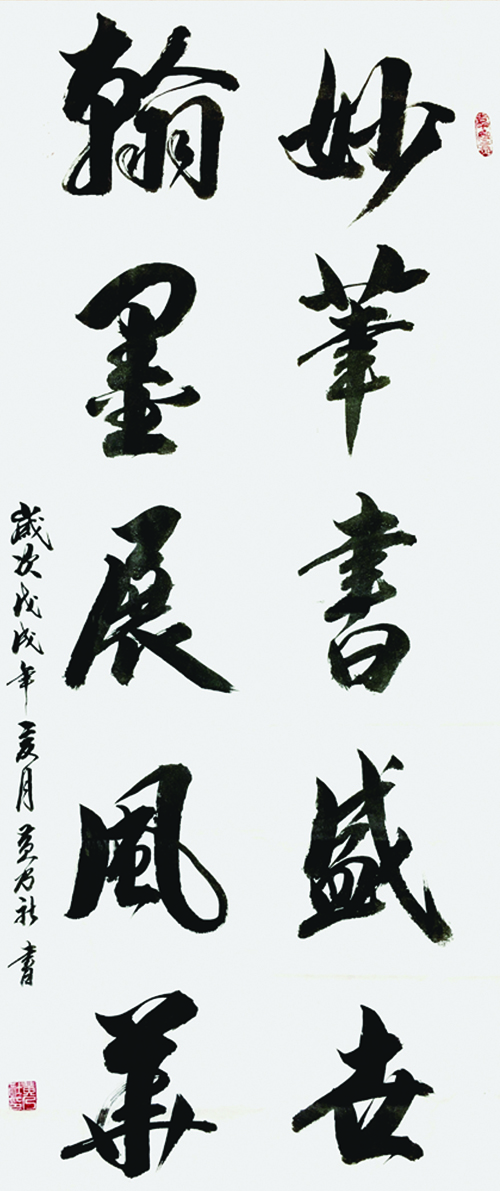 妙筆書盛世
翰墨展風華
歲次戊戌年亥月黃乃社書